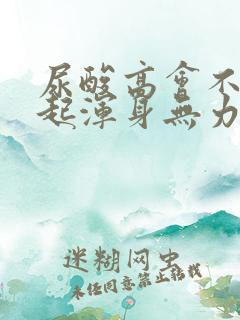 尿酸高會不
起渾身無力
迷糊网虫
未经同意禁止转载